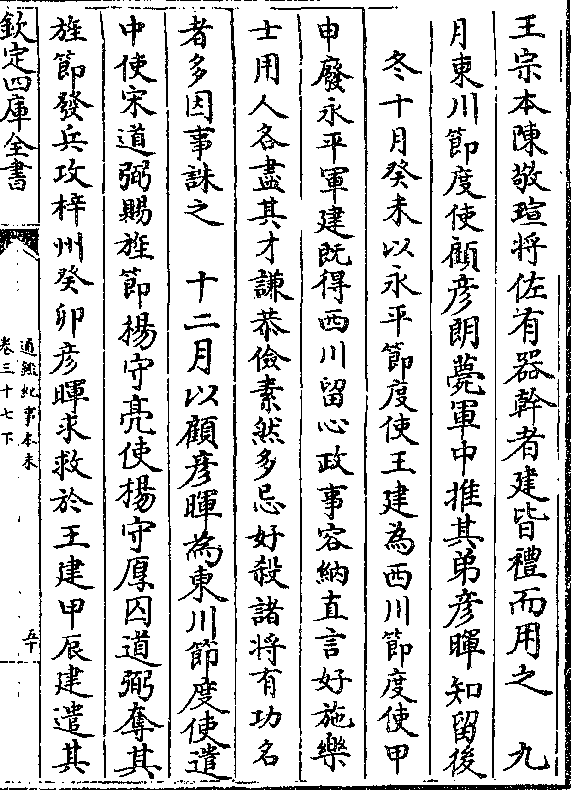 王宗本陳敬瑄将佐有器幹者建皆禮而用之　九
月東川節度使顧彦朗薨軍中推其弟彦暉知留後
冬十月癸未以永平節度使王建為西川節度使甲
申廢永平軍建既得西川留心政事容納直言好施樂
士用人各盡其才謙恭儉素然多忌好殺諸将有功名
者多因事誅之　十二月以顧彦暉為東川節度使遣
中使宋道弼賜旌節楊守亮使楊守厚囚道弼奪其
旌節發兵攻梓州癸卯彦暉求救於王建甲辰建遣其
欽定四庫全書
通鑑紀事本末
卷三十七下
五十